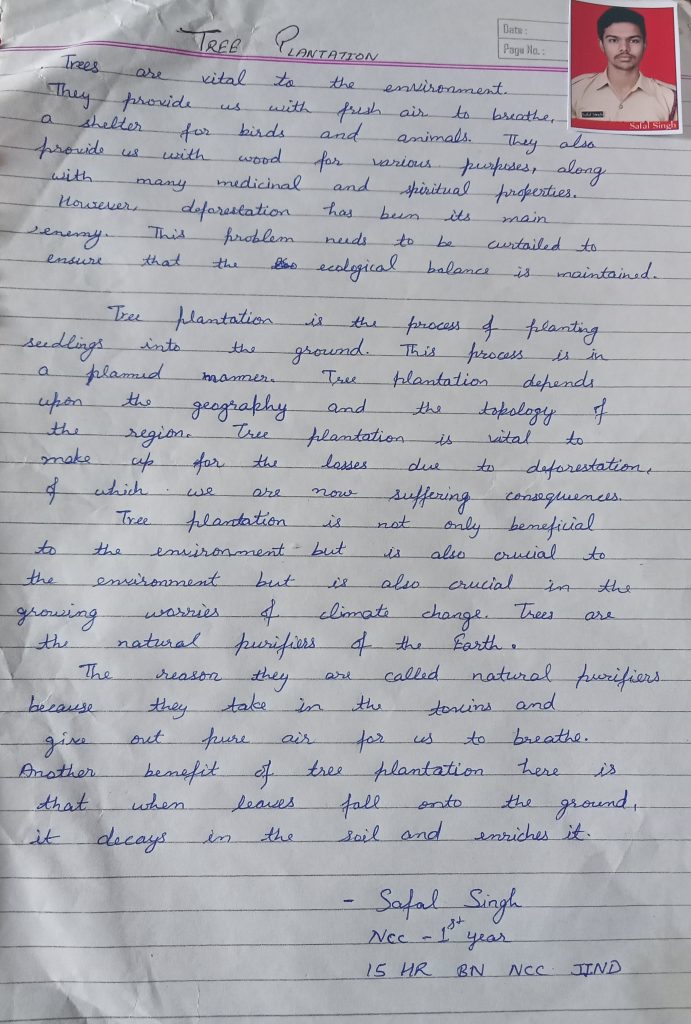 TREE PLANTATION
Date :
Page No. :
Safal Singh
Safal Singh
Trees are vital to the environment.
They provide us with fresh air to breathe,
a shelter for birds and animals. They also
provide us with wood for various purposes, along
with many medicinal and spiritual properties.
However, deforestation has been its main
enemy. This problem needs to be curtailed to
ensure that the ecological balance is maintained.
Tree plantation is the process of planting
seedlings into the ground. This process is in
a planned manner. Tree plantation depends
upon the geography and the topology of
the region. Tree plantation is vital to
make up for the losses due to deforestation,
of which we are now suffering consequences.
Tree plantation is not only beneficial
to the environment but is also crucial to
the environment but is also crucial in the
growing worries of climate change. Trees are
the natural purifiers of the Earth.
The reason they are called natural purifiers
because they take in the toxins and
give out pure air for us to breathe.
Another benefit of tree plantation here is
that when leaves fall onto the ground,
it decays in the soil and enriches it.
- Safal Singh
NCC - 1st year
15 HR BN NCC JIND